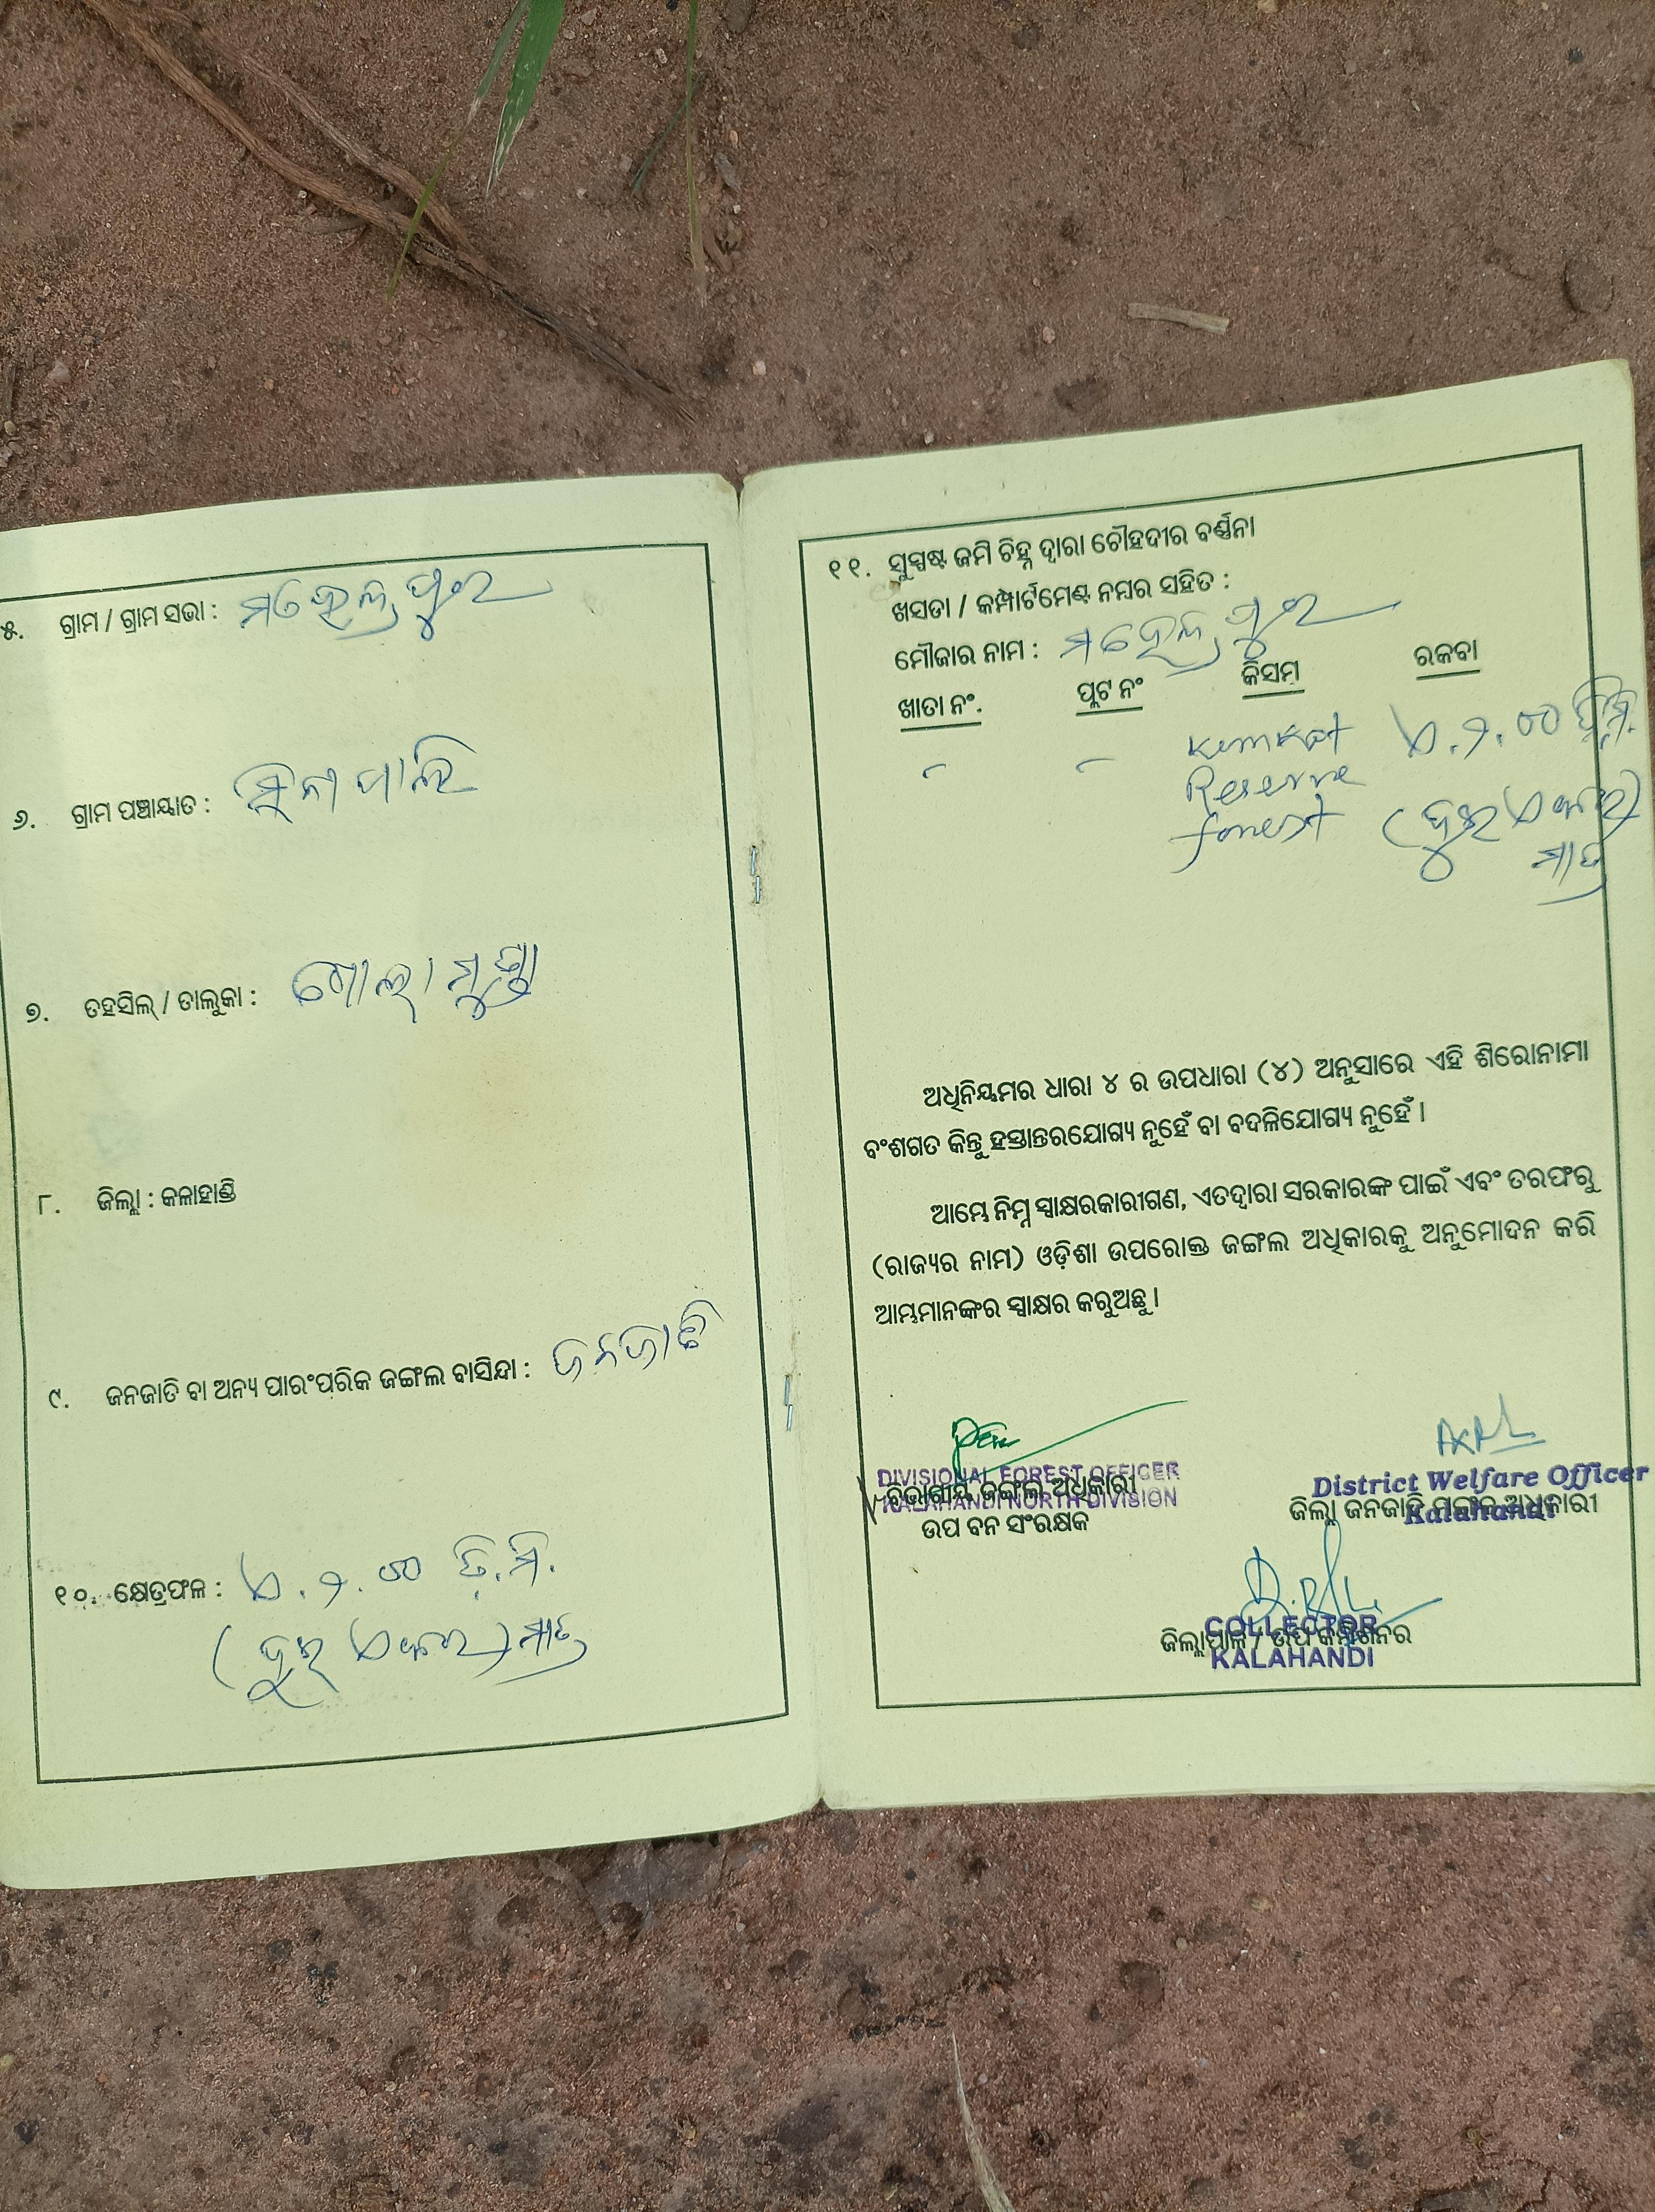 ୫. ଗ୍ରାମ / ଗ୍ରାମ ସଭା : ମହେଲପୁର
୬. ଗ୍ରାମ ପଞ୍ଚାୟାତ :
୭. ତହସିଲ୍ / ତାଲୁକା : ଗୋଲାମୁଣ୍ଡା
୮. ଜିଲ୍ଲା : କଳାହାଣ୍ଡି
୯. ଜନଜାତି ବା ଅନ୍ୟ ପାରଂପରିକ ଜଙ୍ଗଲ ବାସିନ୍ଦା : ଜନଜାତି
୧୦. କ୍ଷେତ୍ରଫଳ : ଏ.୨.୦୦ ଡି.ମି.
(ଦୁଇ ଏକର) ମାତ୍ର
୧୧. ସୁସ୍ପଷ୍ଟ ଜମି ଚିହ୍ନ ଦ୍ୱାରା ଚୌହଦୀର ବର୍ଣ୍ଣନା
ଖସଡା / କମ୍ପାର୍ଟମେଣ୍ଟ ନମ୍ବର ସହିତ :
ମୌଜାର ନାମ : ମହେଲପୁର
ଖାତା ନଂ. ପ୍ଲଟ ନଂ କିସମ ରକବା
- - ଏ.୨.୦୦ ଡି.ମି.
Reserve
forest (ଦୁଇ ଏକର)
ମାତ୍ର
ଅଧିନିୟମର ଧାରା ୪ ର ଉପଧାରା (୪) ଅନୁସାରେ ଏହି ଶିରୋନାମା
ବଂଶଗତ କିନ୍ତୁ ହସ୍ତାନ୍ତରଯୋଗ୍ୟ ନୁହେଁ ବା ବଦଳିଯୋଗ୍ୟ ନୁହେଁ ।
ଆମ୍ଭେ ନିମ୍ନ ସ୍ୱାକ୍ଷରକାରୀଗଣ, ଏତଦ୍ୱାରା ସରକାରଙ୍କ ପାଇଁ ଏବଂ ତରଫରୁ
(ରାଜ୍ୟର ନାମ) ଓଡ଼ିଶା ଉପରୋକ୍ତ ଜଙ୍ଗଲ ଅଧିକାରକୁ ଅନୁମୋଦନ କରି
ଆମ୍ଭମାନଙ୍କର ସ୍ୱାକ୍ଷର କରୁଅଛୁ ।
DIVISIONAL FOREST OFFICER
KALAHANDI NORTH DIVISION
ବିଭାଗୀୟ ଜଙ୍ଗଲ ଅଧିକାରୀ
ଉପ ବନ ସଂରକ୍ଷକ
District Welfare Officer
Kalahandi
ଜିଲ୍ଲା ଜନଜାତି ମଙ୍ଗଳ ଅଧିକାରୀ
COLLECTOR
KALAHANDI
ଜିଲ୍ଲାପାଳ / ଉପ କମିଶନର